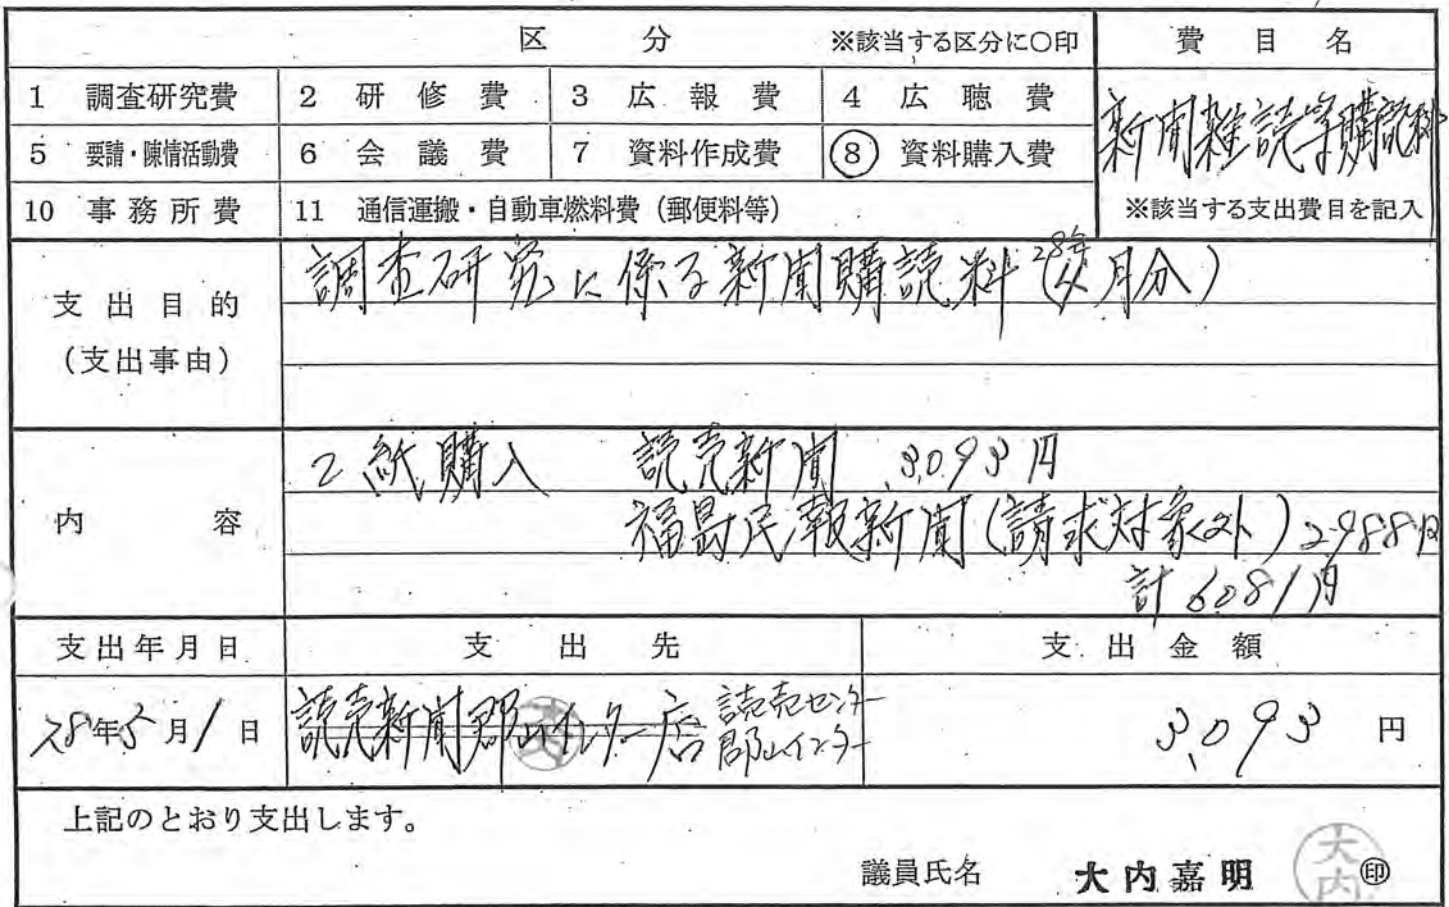 区 分 ※該当する区分に○印 費目名
1 調査研究費 2 研修費 3 広報費 4 広聴費
新聞雑誌等購読料
5 要請・陳情活動費 6 会議費 7 資料作成費 8 資料購入費
10 事務所費 11 通信運搬・自動車燃料費(郵便料等) ※該当する支出費目を記入
調査研究に係る新聞購読料(28年 月分)
支出目的
(支出事由)
2紙購入 読売新聞 3,093円
内容 福島民報新聞(請求対象外)2988円
計6081円
支出年月日 支出先 支出金額
28年5月1日 読売新聞郡山インター店 読売センター郡山インター 3,093円
上記のとおり支出します。
議員氏名 大内嘉明 印
大内